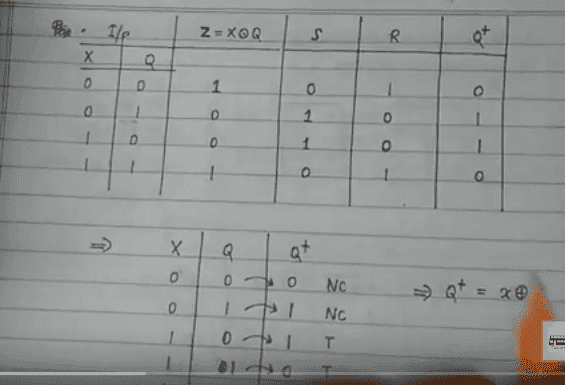 I/p Z = X⊙Q S R Q+
X Q
0 0 1 0 1 0
0 1 0 1 0 1
1 0 0 1 0 1
1 1 1 0 1 0
⇒ X Q Q+
0 0 → 0 NC
0 1 → 1 NC ⇒ Q+ = x⊕
1 0 → 1 T
1 1 → 0 T